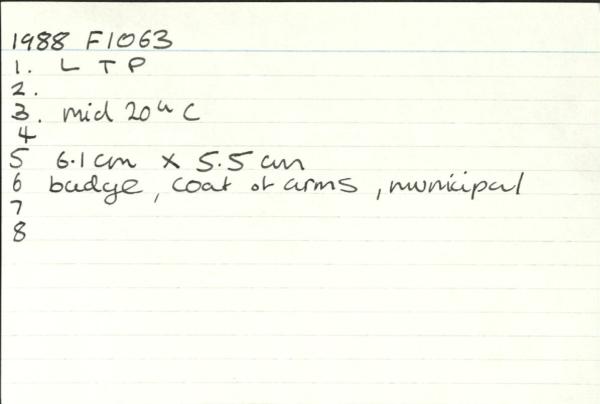 1988 F1063
1. L T P
2.
3. mid 20th C
4
5 6.1 cm x 5.5 cm
6 badge, coat of arms, municipal
7
8